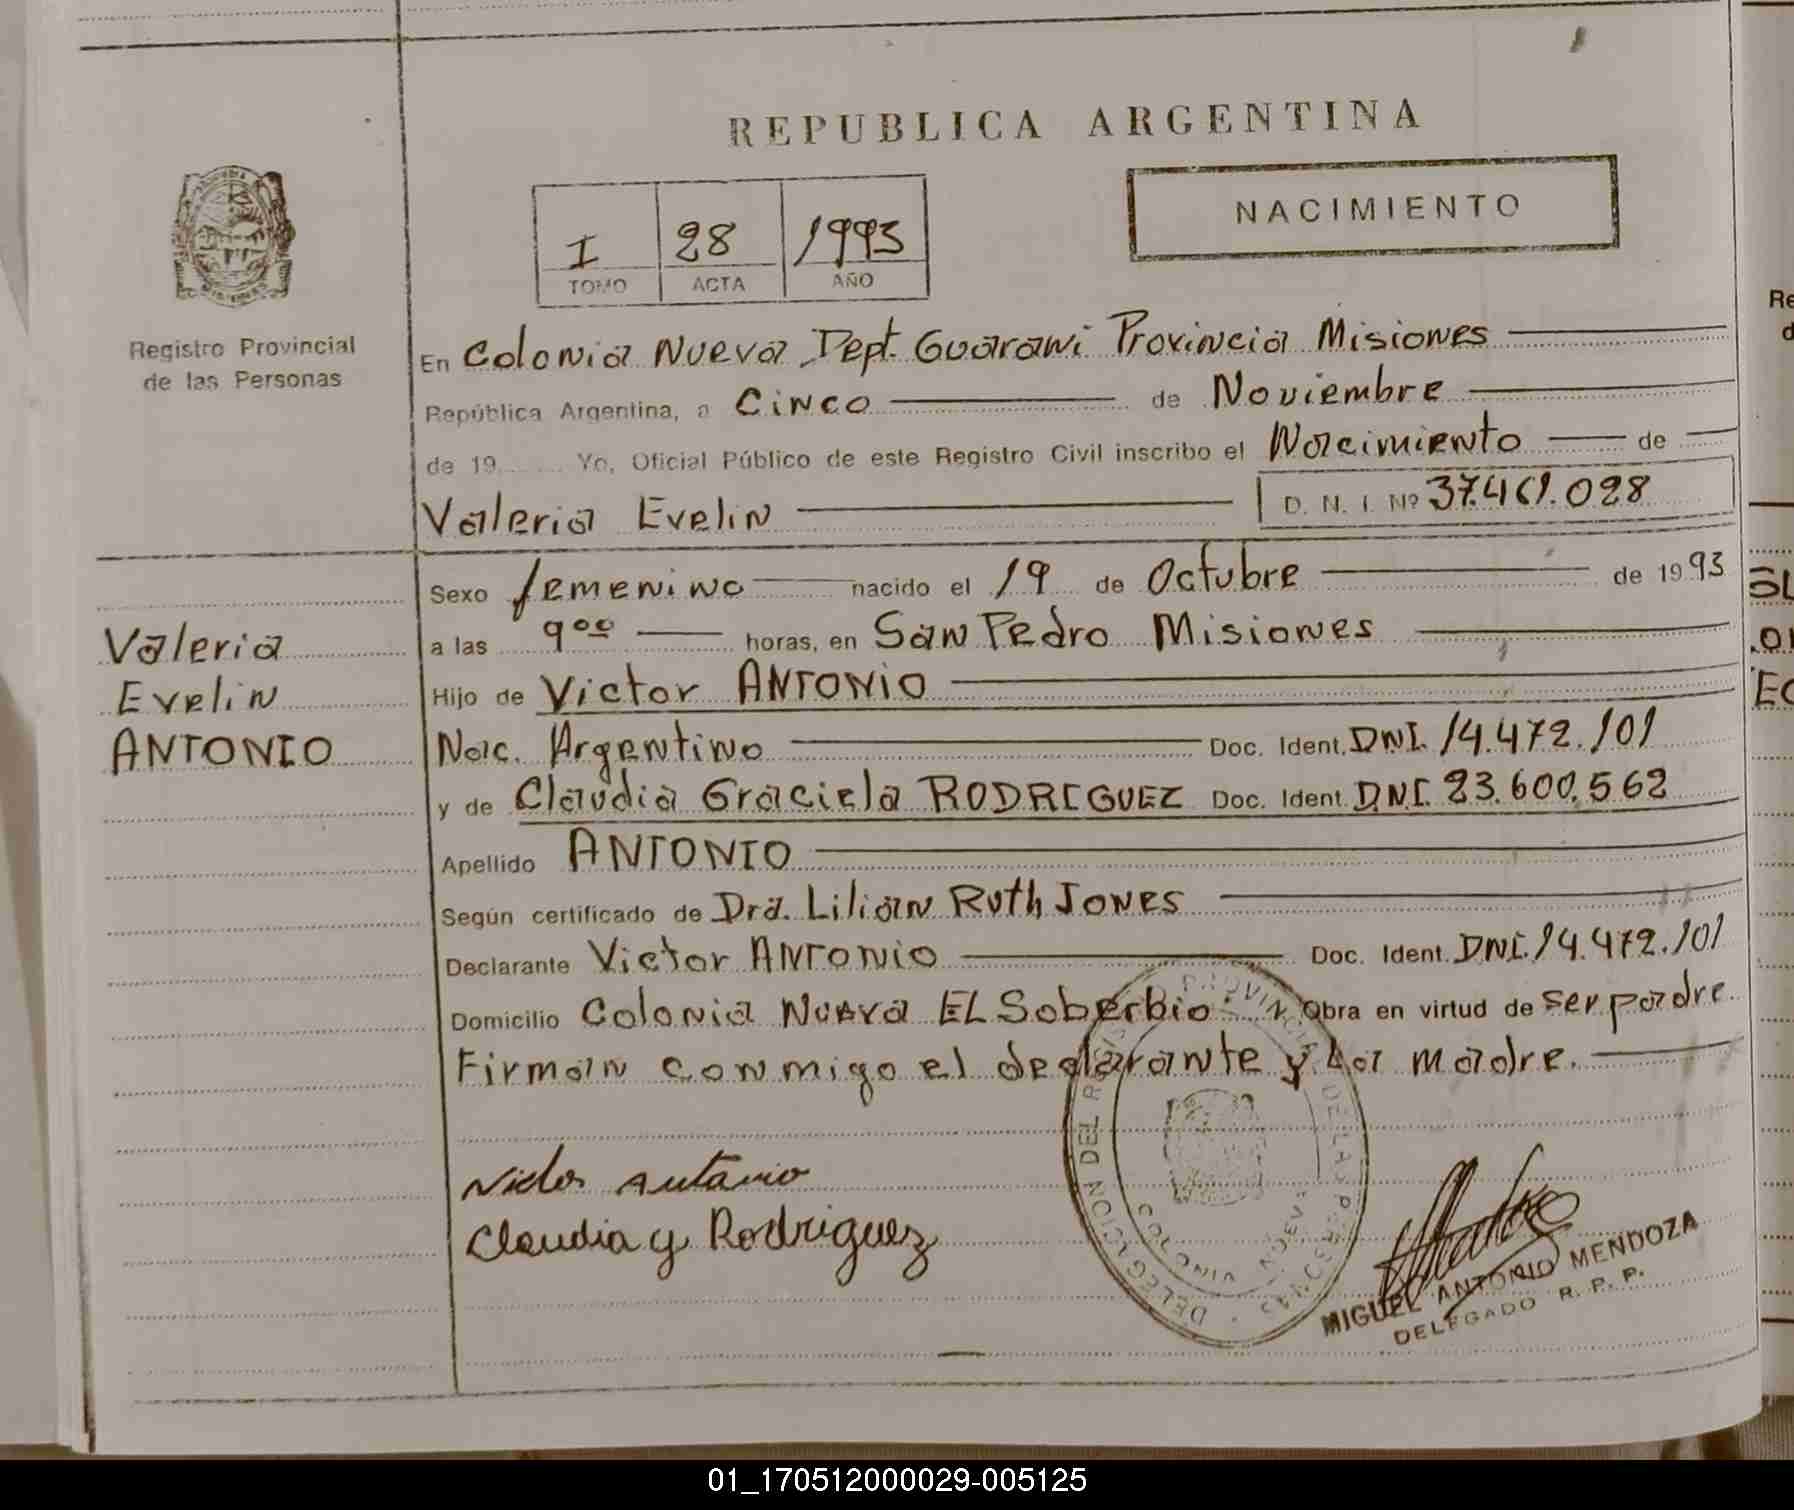 REPUBLICA ARGENTINA
NACIMIENTO
I 28 1993
TOMO ACTA AÑO
Registro Provincial
de las Personas
En Colonia Nueva Dept. Guarani Provincia Misiones
República Argentina, a Cinco de Noviembre
de 19 Yo, Oficial Público de este Registro Civil inscribo el Nacimiento de
Valeria Evelin D. N. I. Nº 37.461.028
Sexo femenino nacido el 19 de Octubre de 1993
a las 9ºº horas, en San Pedro Misiones
Hijo de Victor ANTONIO
Nac. Argentino Doc. Ident. DNI. 14.472.101
y de Claudia Graciela RODRIGUEZ Doc. Ident. D.N.I. 23.600.562
Apellido ANTONIO
Según certificado de Dra. Lilian Ruth Jones
Declarante Victor ANTONIO Doc. Ident. DNI. 14.472.101
Domicilio Colonia Nueva EL Soberbio Obra en virtud de ser padre
Firman conmigo el declarante y La madre.
Valeria
Evelin
ANTONIO
Victor Antonio
Claudia g Rodriguez
DELEGACION DEL REGISTRO PROVINCIAL DE LAS PERSONAS
MIGUEL ANTONIO MENDOZA
DELEGADO R. P. P.
Re
d
01_170512000029-005125